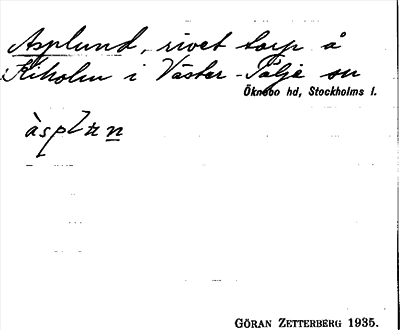 Asplund, rivet torp å
Kiholm i Väster-Tälje sn
Öknebo hd, Stockholms l.
GÖRAN ZETTERBERG 1935.